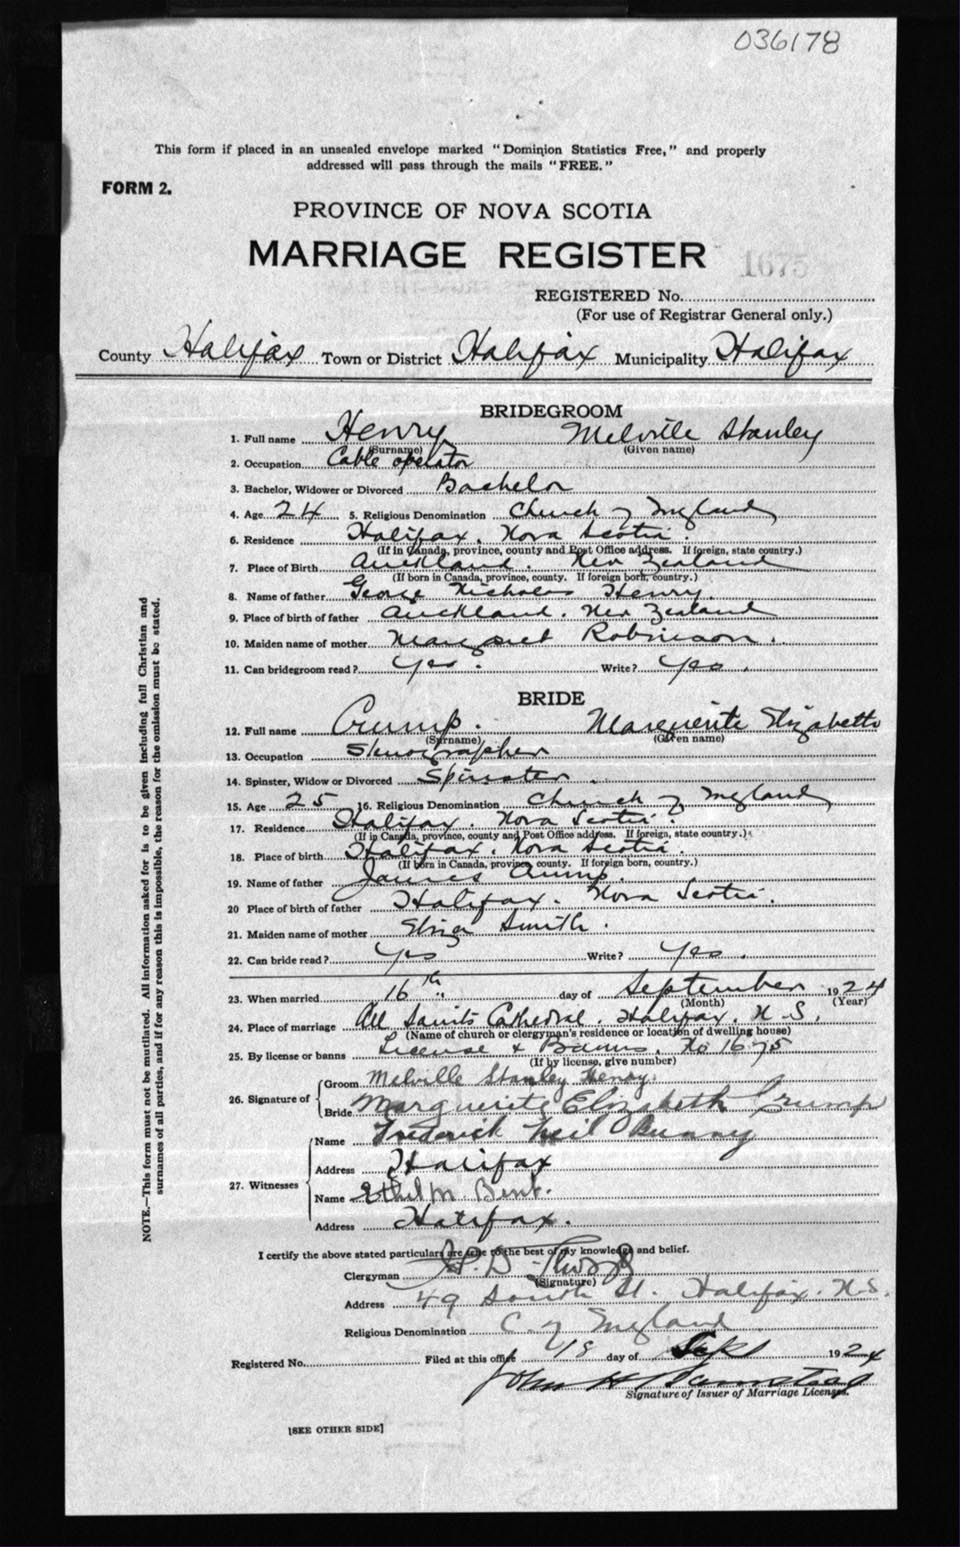 036178
This form if placed in an unsealed envelope marked "Dominion Statistics Free," and properly
addressed will pass through the mails "FREE."
FORM 2.
PROVINCE OF NOVA SCOTIA
MARRIAGE REGISTER
1675
REGISTERED No.
(For use of Registrar General only.)
County Halifax Town or District Halifax Municipality Halifax
BRIDEGROOM
1. Full name Henry Melville Stanley
(Surname) (Given name)
2. Occupation Cable operator
3. Bachelor, Widower or Divorced Bachelor
4. Age 24 5. Religious Denomination Church of England
6. Residence Halifax, Nova Scotia.
(If in Canada, province, county and Post Office address. If foreign, state country.)
7. Place of Birth Auckland. New Zealand
(If born in Canada, province, county. If foreign born, country.)
8. Name of father George Nicholas Henry.
9. Place of birth of father Auckland. New Zealand
10. Maiden name of mother Margaret Robinson.
11. Can bridegroom read? Yes. Write? Yes.
BRIDE
12. Full name Crump. Marguerite Elizabeth
(Surname) (Given name)
13. Occupation Stenographer
14. Spinster, Widow or Divorced Spinster.
15. Age 25 16. Religious Denomination Church of England
17. Residence Halifax. Nova Scotia.
(If in Canada, province, county and Post Office address. If foreign, state country.)
18. Place of birth Halifax. Nova Scotia.
(If born in Canada, province county. If foreign born, country.)
19. Name of father James Crump.
20 Place of birth of father Halifax. Nova Scotia.
21. Maiden name of mother Eliza Smith.
22. Can bride read? Yes Write? Yes.
23. When married 16th day of September 1924
(Month) (Year)
24. Place of marriage All Saints Cathedral. Halifax. N.S.
(Name of church or clergyman's residence or location of dwelling house)
25. By license or banns License & Banns. No 1675
(If by license, give number)
26. Signature of Groom Melville Stanley Henry.
Bride Marguerite Elizabeth Crump
27. Witnesses Name Frederick Neil
Address Halifax
Name Ethel M. Bent.
Address Halifax.
I certify the above stated particulars are true to the best of my knowledge and belief.
Clergyman
(Signature)
Address 49 South St. Halifax. N.S.
Religious Denomination C. of England
Registered No. Filed at this office 18 day of Sept 1924
John H
Signature of Issuer of Marriage Licenses.
[SEE OTHER SIDE]
NOTE.—This form must not be mutilated. All information asked for is to be given including full Christian and
surnames of all parties, and if for any reason this is impossible, the reason for the omission must be stated.